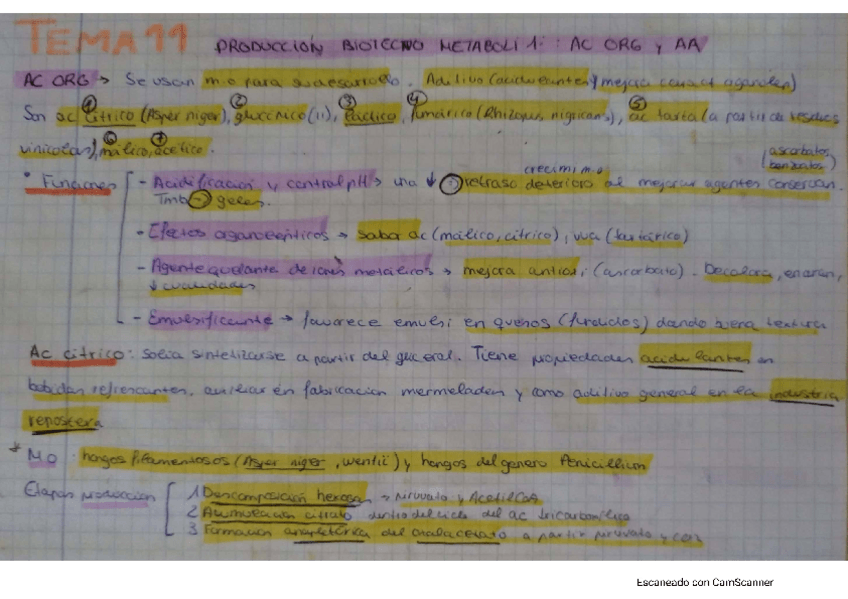 TEMA 11 PRODUCCIÓN BIOTECNO METABOLI 1: AC ORG y AA
AC ORG → Se usan m.o para su desarrollo. Aditivo (acidulantes y mejora caract organolen)
① ② ③ ④ ⑤
Son ac cítrico (Asper niger), glucónico (11), láctico, fumárico (Rhizopus nigricans), ac tarta (a partir de residuos
⑥ ⑦
vinicolas), málico, acético.
(ascorbatos, benzoatos)
crecimi m.o
• Funciones - Acidificación y control pH → una ↓ retraso deterioro al mejorar agentes conservan.
Tmb geles.
- Efectos organolépticos → sabor ac (málico, cítrico), uva (tartárico)
- Agente quelante de iones metálicos → mejora antiox, (ascorbato). Decolora,
↓ cualidades
- Emulsificante → favorece emulsi en quesos (fundidos) dando buena textura
Ac cítrico: solía sintetizarse a partir del glicerol. Tiene propiedades acidulantes en
bebidas refrescantes, auxiliar en fabricacion mermeladas y como aditivo general en la industria
repostera
* MO: hongos filamentosos (Asper niger, wentii) y hongos del genero Penicillium
Etapas producción 1 Descomposición hexosas → piruvato y AcetilCoA
2 Acumulacion citrato dentro del ciclo del ac tricarboxílico
3 Formacion anaplerótica del oxalacetato a partir piruvato y CO2
Escaneado con CamScanner